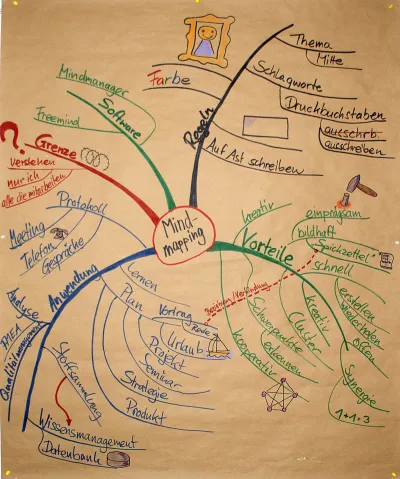 Mind-
mapping
Regeln
Thema
Mitte
Schlagworte
Druckbuchstaben
ausschrb.
ausschreiben
Auf Ast schreiben
Farbe
Software
Mindmanager
Freemind
?
Grenze
verstehen
nur ich
alle die mitarbeiten
Anwendung
Protokoll
Meeting
Telefon
Gespräche
Analyse
FMEA
Qualitätsmanagement
Stoffsammlung
Wissensmanagement
Datenbank
Lernen
Plan
Vortrag
Rede
Urlaub
Projekt
Seminar
Strategie
Produkt
Vorteile
kreativ
einprägsam
bildhaft
Spickzettel
schnell
erstellen
wiederholen
offen
Synergie
1+1=3
kreativ
Cluster
Schwerpunkte
erkennen
kooperativ